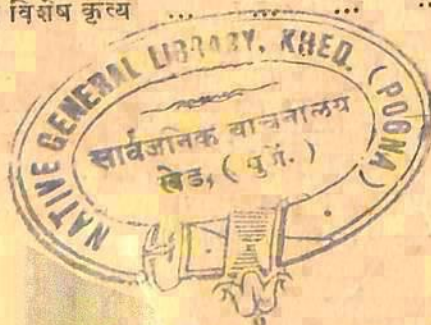 विशेष कृत्य ... ... ... ..
NATIVE GENERAL LIBRARY, KHED. (POONA)
सार्वजनिक वाचनालय
खेड, (पुणें.)